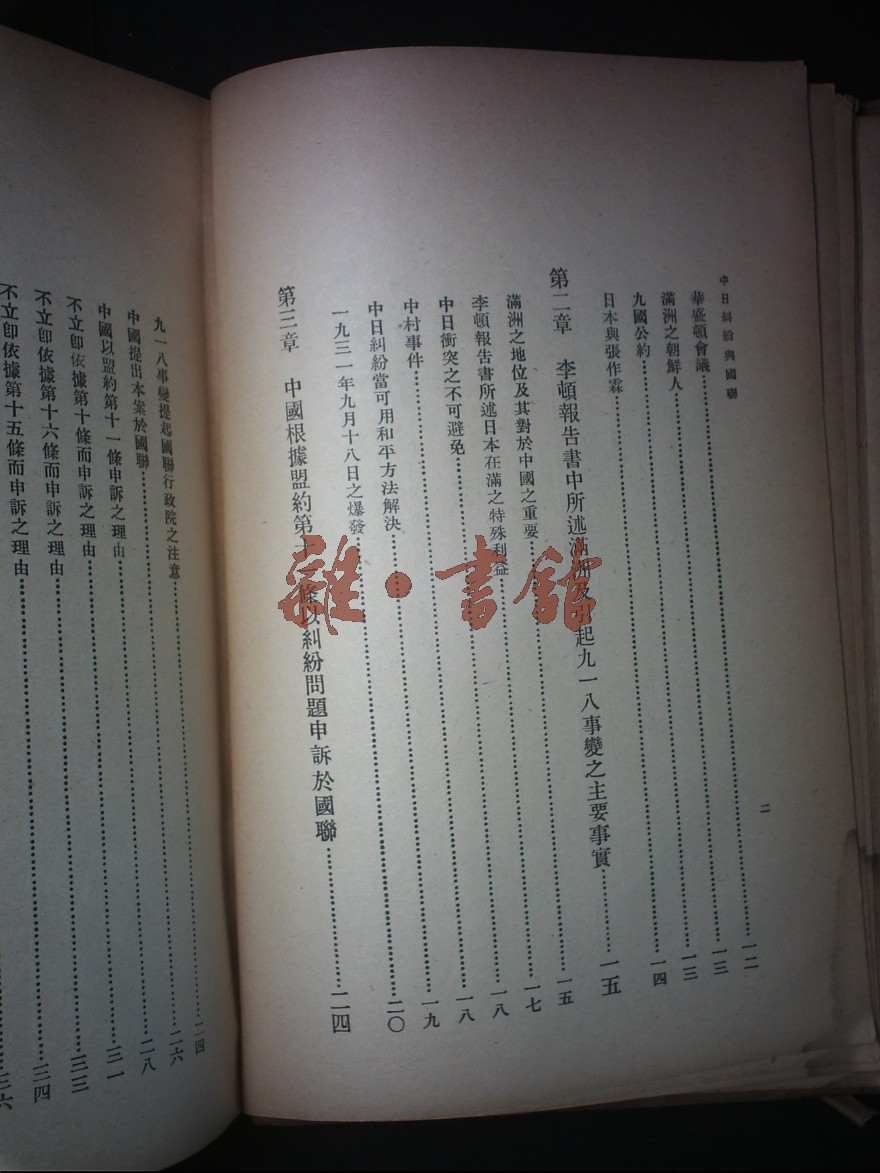 中日糾紛與國聯
二
華盛頓會議……一二
滿洲之朝鮮人……一三
九國公約……一三
日本與張作霖……一四
第二章 李頓報告書中所述滿洲及引起九一八事變之主要事實……一五
滿洲之地位及其對於中國之重要……一五
李頓報告書所述日本在滿之特殊利益……一七
中日衝突之不可避免……一八
中村事件……一八
中日糾紛當可用和平方法解決……一九
一九三一年九月十八日之爆發……二〇
第三章 中國根據盟約第十一條以糾紛問題申訴於國聯……二四
九一八事變提起國聯行政院之注意……二四
中國提出本案於國聯……二六
中國以盟約第十一條申訴之理由……二八
不立卽依據第十條而申訴之理由……三一
不立卽依據第十六條而申訴之理由……三三
不立卽依據第十五條而申訴之理由……三四
三六
雜·書館